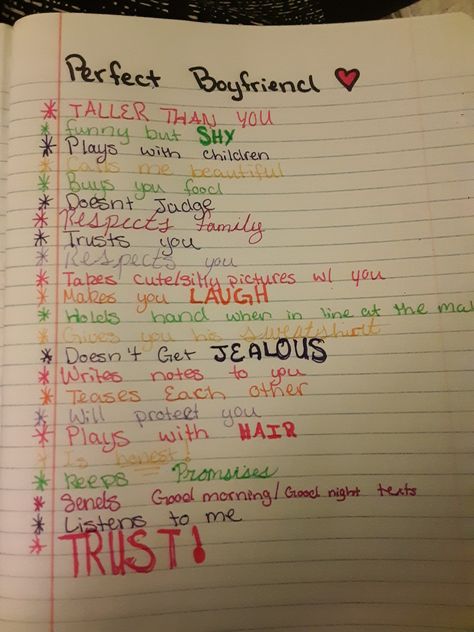 Perfect Boyfriend ♥
* TALLER THAN YOU
* funny but SHY
* Plays with children
* Calls me beautiful
* Buys you food
* Doesnt Judge
* Respects family
* Trusts you
* Respects you
* Takes cute/silly pictures w/ you
* Makes you LAUGH
* Holds hand when in line at the ma
* Gives you his sweatshirt
* Doesn't Get JEALOUS
* Writes notes to you
* Teases Each other
* Will protect you
* Plays with HAIR
* Is honest!
* Keeps Promsises
* Sends Good morning/Good night texts
* Listens to me
* TRUST!